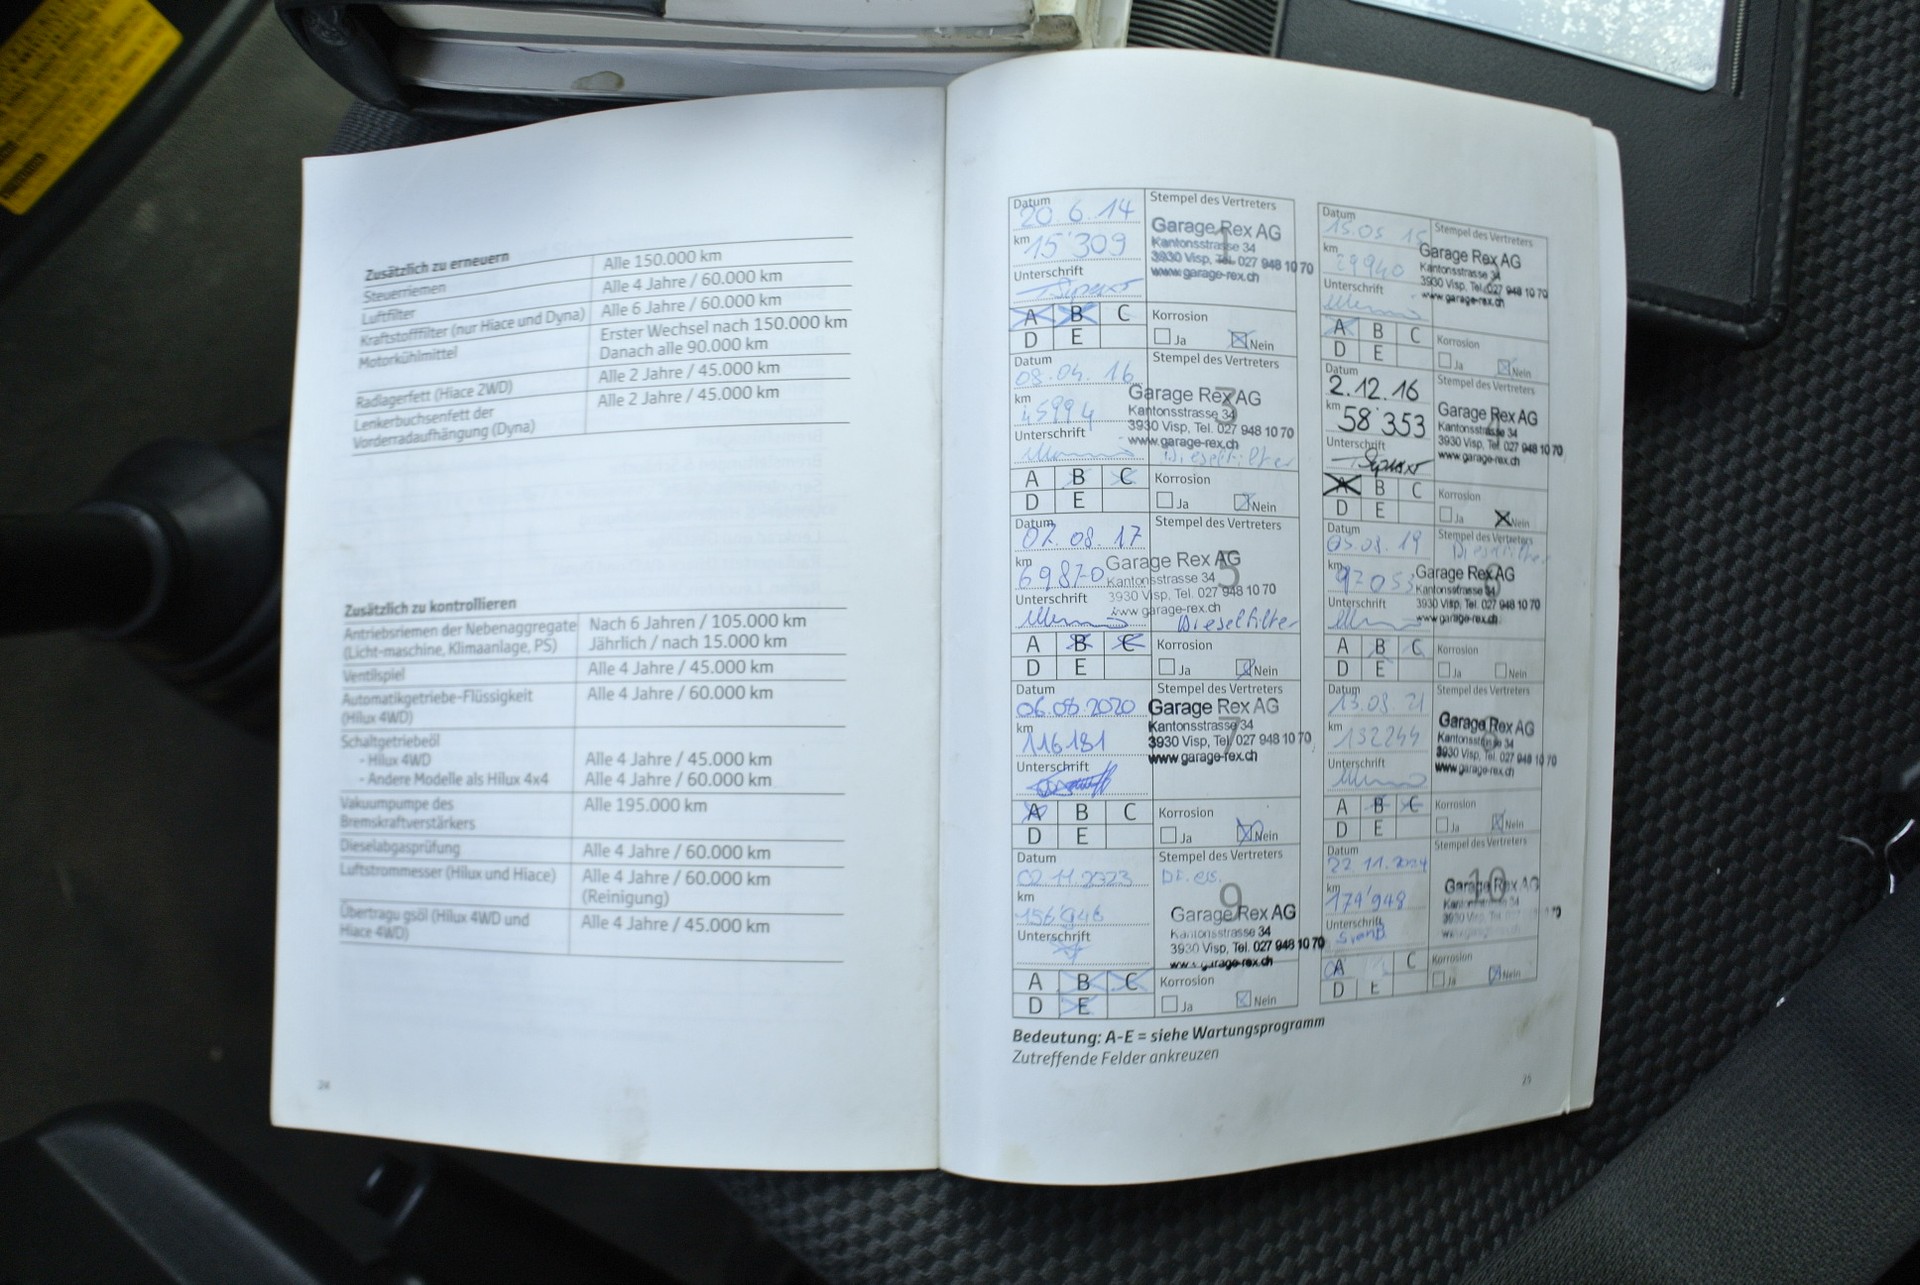 Zusätzlich zu erneuern
Steuerriemen Alle 150.000 km
Luftfilter Alle 4 Jahre / 60.000 km
Kraftstofffilter (nur Hiace und Dyna) Alle 6 Jahre / 60.000 km
Motorkühlmittel Erster Wechsel nach 150.000 km
Danach alle 90.000 km
Radlagerfett (Hiace 2WD) Alle 2 Jahre / 45.000 km
Lenkerbuchsenfett der Alle 2 Jahre / 45.000 km
Vorderradaufhängung (Dyna)
Zusätzlich zu kontrollieren
Antriebsriemen der Nebenaggregate Nach 6 Jahren / 105.000 km
(Licht-maschine, Klimaanlage, PS) Jährlich / nach 15.000 km
Ventilspiel Alle 4 Jahre / 45.000 km
Automatikgetriebe-Flüssigkeit Alle 4 Jahre / 60.000 km
(Hilux 4WD)
Schaltgetriebeöl
- Hilux 4WD Alle 4 Jahre / 45.000 km
- Andere Modelle als Hilux 4x4 Alle 4 Jahre / 60.000 km
Vakuumpumpe des Alle 195.000 km
Bremskraftverstärkers
Dieselabgasprüfung Alle 4 Jahre / 60.000 km
Luftstrommesser (Hilux und Hiace) Alle 4 Jahre / 60.000 km
(Reinigung)
Übertragu gsöl (Hilux 4WD und Alle 4 Jahre / 45.000 km
Hiace 4WD)
24
Datum Stempel des Vertreters
20.6.14
1
Garage Rex AG
km 15'309
Kantonsstrasse 34
3930 Visp, Tel. 027 948 10 70
Unterschrift
www.garage-rex.ch
A B C Korrosion
D E Ja Nein
Datum Stempel des Vertreters
15.05 15
Garage Rex AG
km 29940
Kantonsstrasse 34
3930 Visp, Tel. 027 948 10 70
Unterschrift
www.garage-rex.ch
A B C Korrosion
D E Ja Nein
Datum Stempel des Vertreters
08.04.16
3
Garage Rex AG
km 45994
Kantonsstrasse 34
3930 Visp, Tel. 027 948 10 70
Unterschrift
www.garage-rex.ch
Dieselfilter
A B C Korrosion
D E Ja Nein
Datum Stempel des Vertreters
2.12.16
4
Garage Rex AG
km 58'353
Kantonsstrasse 34
3930 Visp, Tel. 027 948 10 70
Unterschrift
www.garage-rex.ch
A B C Korrosion
D E Ja Nein
Datum Stempel des Vertreters
07.08.17
5
Garage Rex AG
km 69870
Kantonsstrasse 34
3930 Visp, Tel. 027 948 10 70
Unterschrift
www.garage-rex.ch
Dieselfilter
A B C Korrosion
D E Ja Nein
Datum Stempel des Vertreters
05.08.19 Dieselfilter
Garage Rex AG
km 92053
Kantonsstrasse 34
3930 Visp, Tel. 027 948 10 70
Unterschrift
www.garage-rex.ch
A B C Korrosion
D E Ja Nein
Datum Stempel des Vertreters
06.08.2020
7
Garage Rex AG
km 116181
Kantonsstrasse 34
3930 Visp, Tel. 027 948 10 70
Unterschrift
www.garage-rex.ch
A B C Korrosion
D E Ja Nein
Datum Stempel des Vertreters
13.08.21
Garage Rex AG
km 132244
Kantonsstrasse 34
3930 Visp, Tel. 027 948 10 70
Unterschrift
www.garage-rex.ch
A B C Korrosion
D E Ja Nein
Datum Stempel des Vertreters
02.11.2023
9
km 156946
Garage Rex AG
Kantonsstrasse 34
Unterschrift
3930 Visp, Tel. 027 948 10 70
www.garage-rex.ch
A B C Korrosion
D E Ja Nein
Datum Stempel des Vertreters
22 11.2024
10
Garage Rex AG
km 174'948
3930 Visp
Unterschrift
A C Korrosion
D E Ja Nein
Bedeutung: A-E = siehe Wartungsprogramm
Zutreffende Felder ankreuzen
25